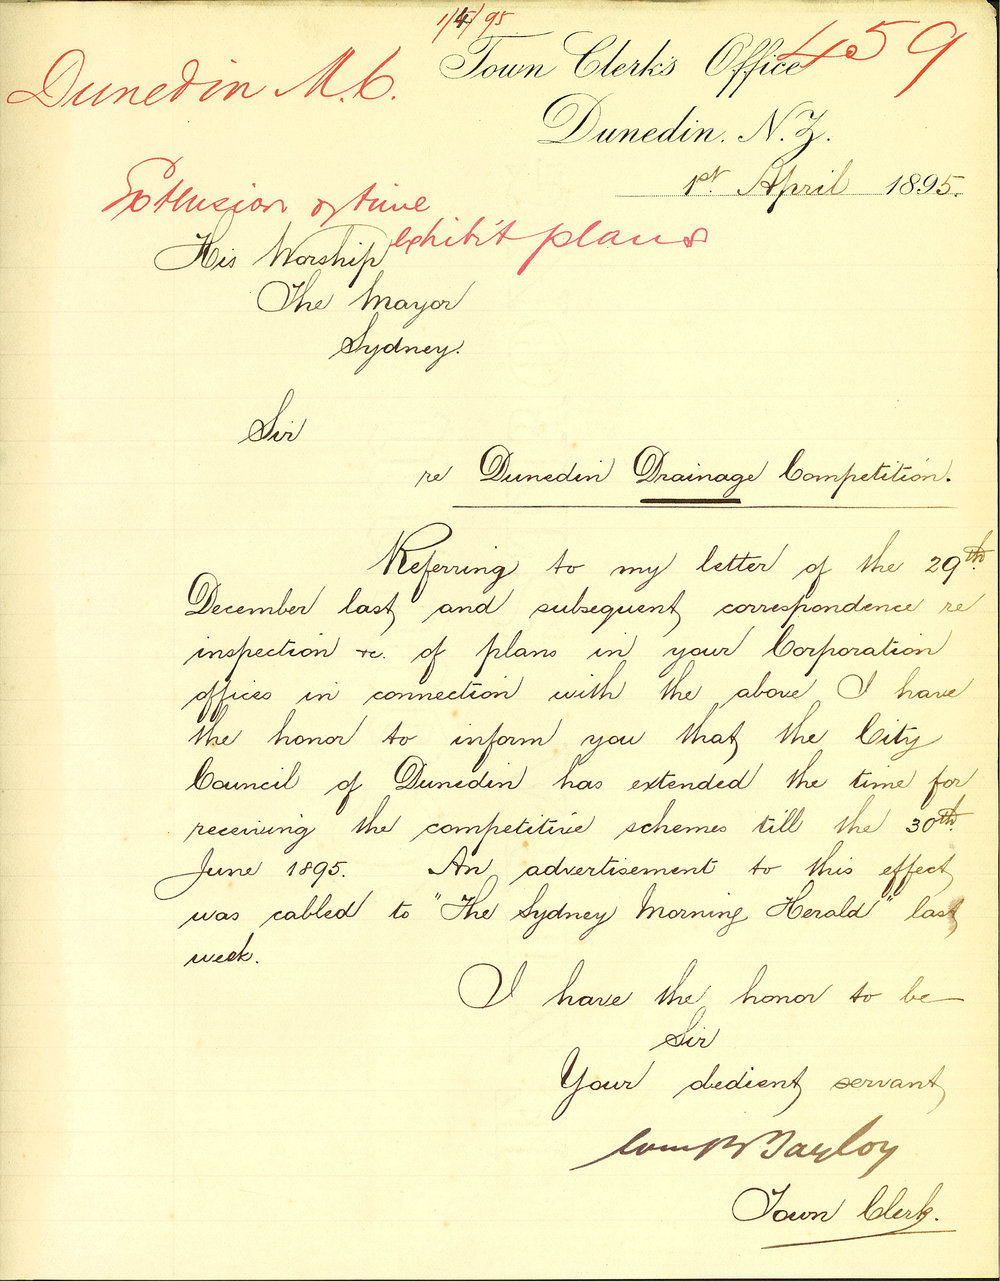 1/4/95
459
Dunedin M.C.
Town Clerk's Office
Dunedin. N.Z.
1st. April 1895.
Extension of time
exhibit plans
His Worship
The Mayor
Sydney.
Sir
re Dunedin Drainage Competition.
Referring to my letter of the 29th.
December last, and subsequent correspondence re
inspection &c. of plans in your Corporation
offices in connection with the above I have
the honor to inform you that the City
Council of Dunedin has extended the time for
receiving the competitive schemes till the 30th.
June 1895. An advertisement to this effect
was cabled to "The Sydney Morning Herald" last
week.
I have the honor to be
Sir
Your obedient servant
Taylor
Town Clerk.